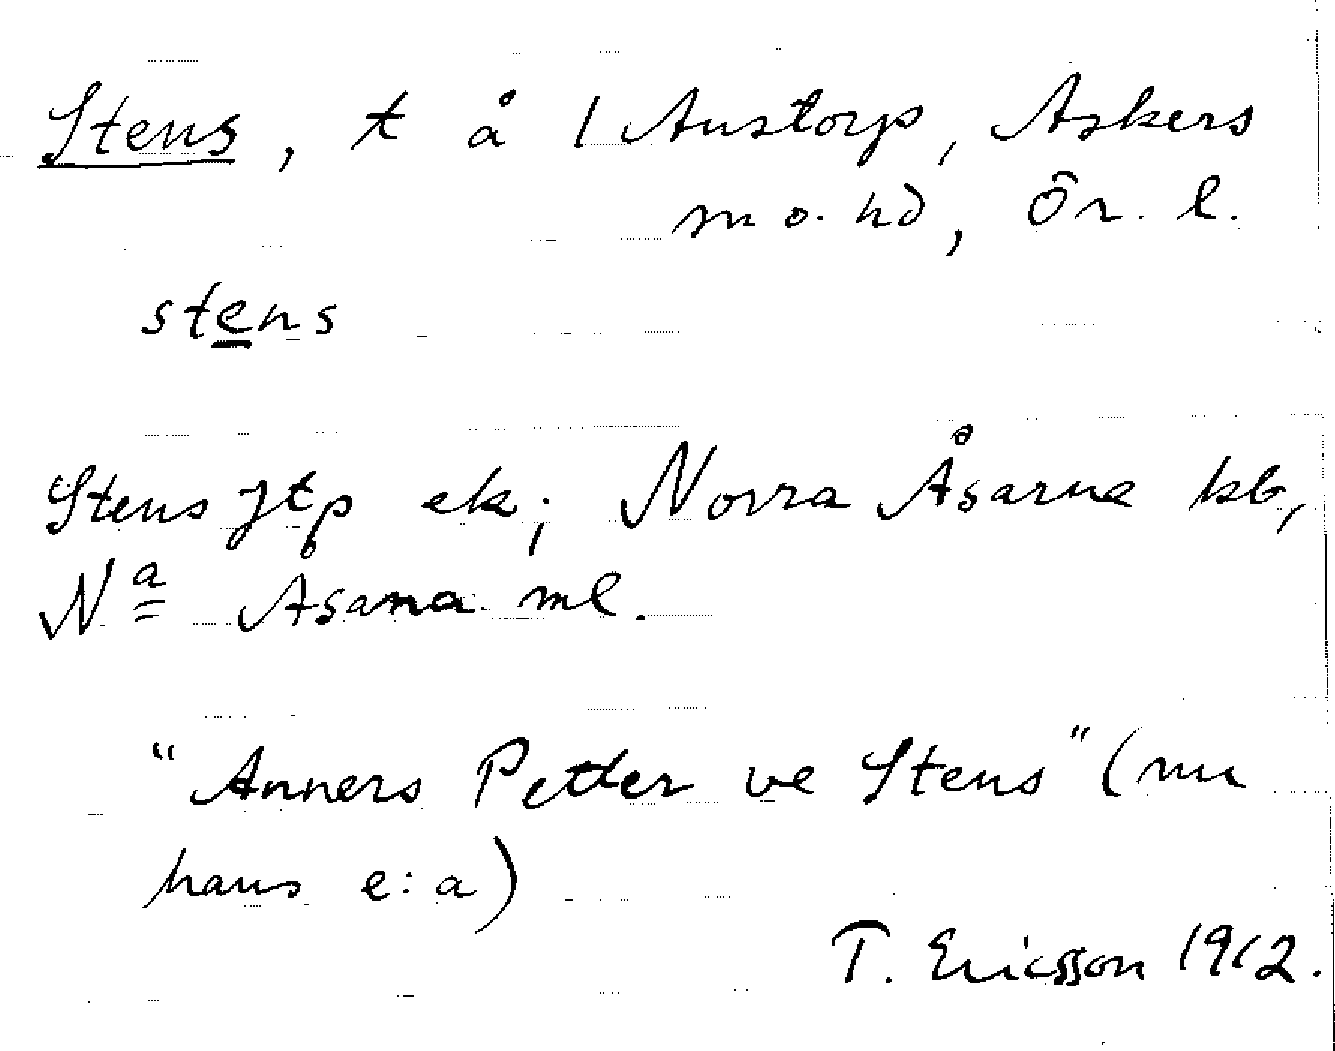 Stens, t å 1 Austorp, Askers
sn o. hd, Ör. l.
stens
Stens jtp ek; Norra Åsarne kb,
Na Åsarna ml.
"Anners Petter ve Stens" (nu
hans e:a)
T. Ericsson 1912.